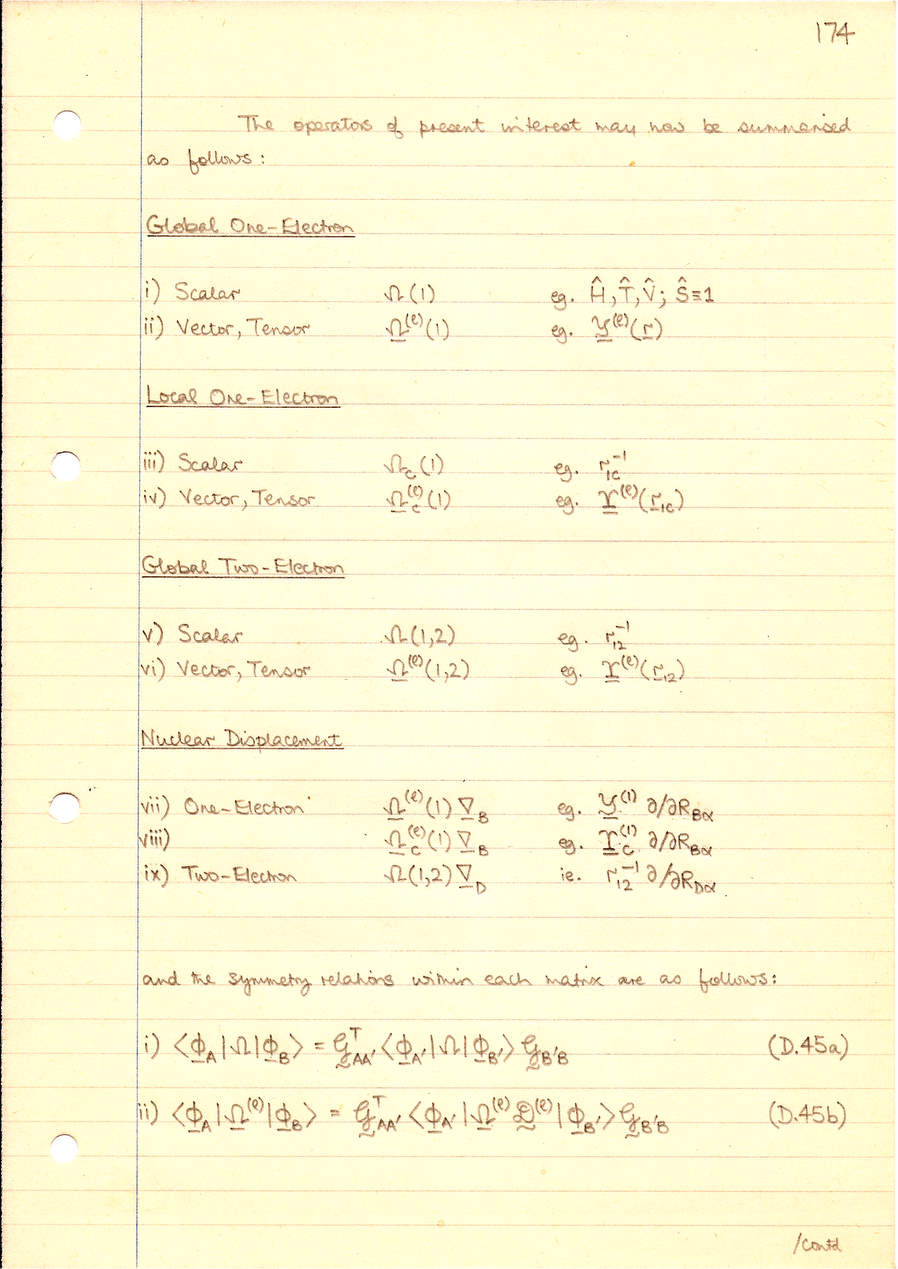 174
The operators of present interest may now be summarised
as follows:
Global One-Electron
i) Scalar Ω(1) eg. Ĥ, T̂, V̂; Ŝ≡1
ii) Vector, Tensor Ω̲^(ℓ)(1) eg. 𝒴̲^(ℓ)(r̲)
Local One-Electron
iii) Scalar Ω_C(1) eg. r_1C^-1
iv) Vector, Tensor Ω̲_C^(ℓ)(1) eg. ϒ̲^(ℓ)(r̲_1C)
Global Two-Electron
v) Scalar Ω(1,2) eg. r_12^-1
vi) Vector, Tensor Ω̲^(ℓ)(1,2) eg. ϒ̲^(ℓ)(r̲_12)
Nuclear Displacement
vii) One-Electron Ω̲^(ℓ)(1) ∇̲_B eg. 𝒴̲^(1) ∂/∂R_Bα
viii) Ω̲_C^(ℓ)(1) ∇̲_B eg. ϒ̲_C^(1) ∂/∂R_Bα
ix) Two-Electron Ω(1,2) ∇̲_D ie. r_12^-1 ∂/∂R_Dα
and the symmetry relations within each matrix are as follows:
i) ⟨ϕ̲_A|Ω|ϕ̲_B⟩ = 𝒢̰_AA'^T ⟨ϕ̲_A'|Ω|ϕ̲_B'⟩ 𝒢̰_B'B (D.45a)
ii) ⟨ϕ̲_A|Ω̲^(ℓ)|ϕ̲_B⟩ = 𝒢̰_AA'^T ⟨ϕ̲_A'|Ω̲^(ℓ) 𝒟̰^(ℓ)|ϕ̲_B'⟩ 𝒢̰_B'B (D.45b)
/contd